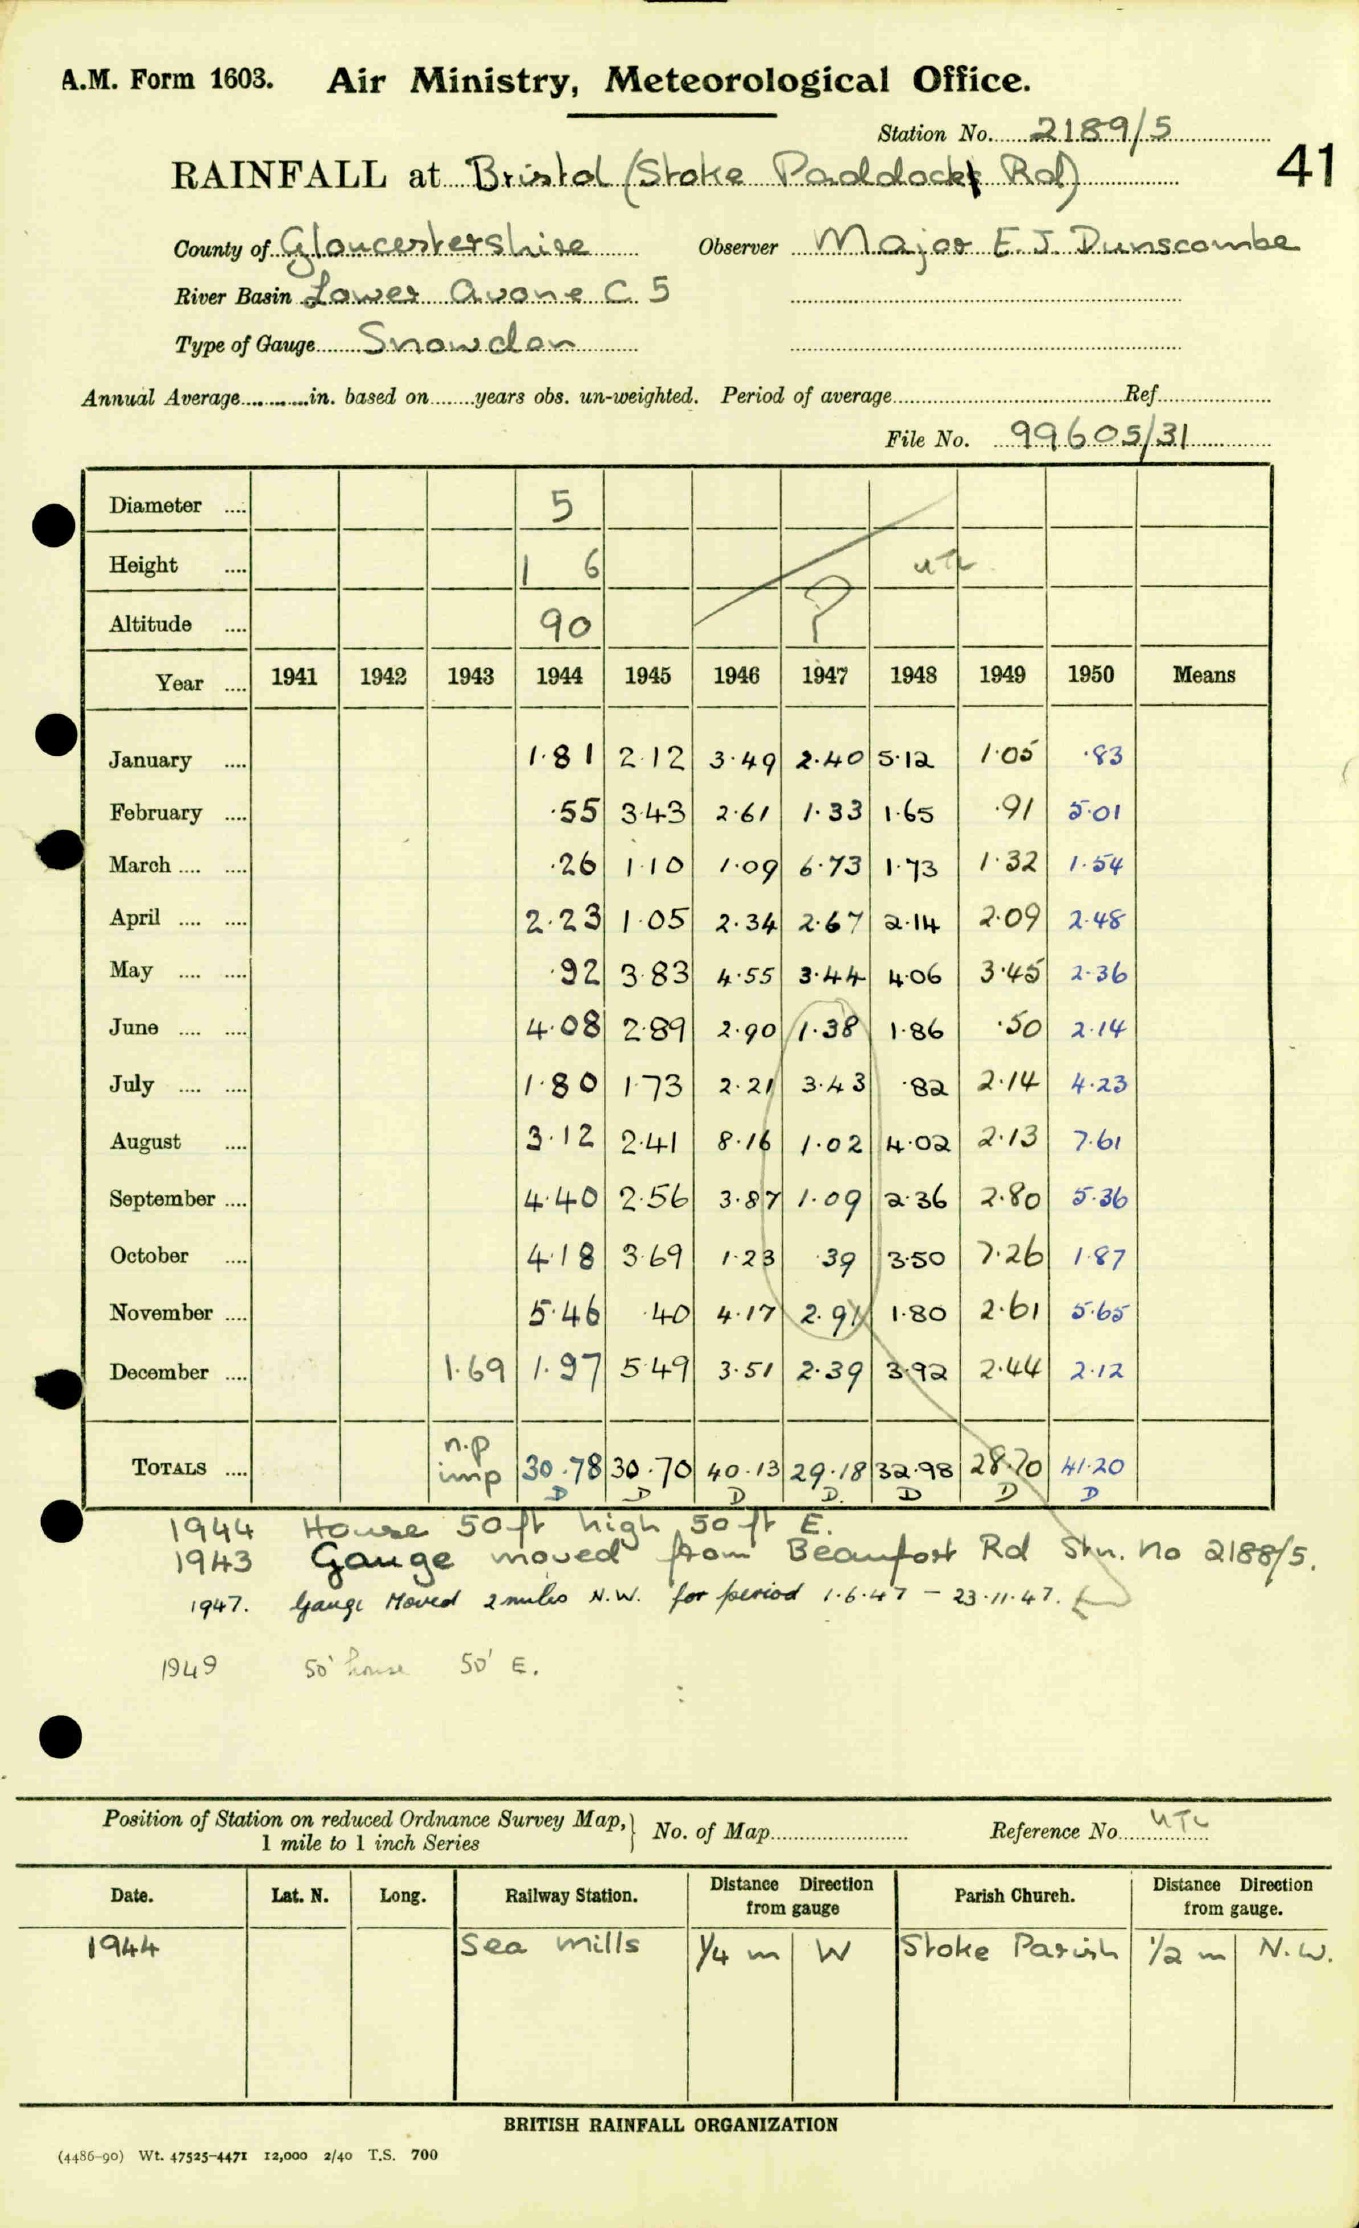 A.M. Form 1603. Air Ministry, Meteorological Office.
Station No. 2189/5
41
RAINFALL at Bristol (Stoke Paddock Rd)
County of Gloucestershire Observer Major E. J. Dunscombe
River Basin Lower Avone C 5
Type of Gauge Snowdon
Annual Average............in. based on........years obs. un-weighted. Period of average........ Ref........
File No. 99605/31
Diameter .... 5
Height .... 1 6
Altitude .... 90 ?
Year .... 1941 1942 1943 1944 1945 1946 1947 1948 1949 1950 Means
January .... 1.81 2.12 3.49 2.40 5.12 1.05 .83
February .... .55 3.43 2.61 1.33 1.65 .91 5.01
March .... .... .26 1.10 1.09 6.73 1.73 1.32 1.54
April .... .... 2.23 1.05 2.34 2.67 2.14 2.09 2.48
May .... .... .92 3.83 4.55 3.44 4.06 3.45 2.36
June .... .... 4.08 2.89 2.90 1.38 1.86 .50 2.14
July .... .... 1.80 1.73 2.21 3.43 .82 2.14 4.23
August .... 3.12 2.41 8.16 1.02 4.02 2.13 7.61
September .... 4.40 2.56 3.87 1.09 2.36 2.80 5.36
October .... 4.18 3.69 1.23 .39 3.50 7.26 1.87
November .... 5.46 .40 4.17 2.91 1.80 2.61 5.65
December .... 1.69 1.97 5.49 3.51 2.39 3.92 2.44 2.12
n.p
TOTALS .... imp 30.78 30.70 40.13 29.18 32.98 28.70 41.20
D D D D. D D D
1944 House 50ft high 50ft E.
1943 Gauge moved from Beaufort Rd Stn. no 2188/5.
1947. Gauge Moved 2 miles N.W. for period 1.6.47 – 23.11.47.
1949 50' house 50' E.
Position of Station on reduced Ordnance Survey Map, 1 mile to 1 inch Series } No. of Map........ Reference No........
Date. Lat. N. Long. Railway Station. Distance Direction from gauge Parish Church. Distance Direction from gauge.
1944 Sea Mills 1/4 m W Stoke Parish 1/2 m N.W.
BRITISH RAINFALL ORGANIZATION
(4486-90) Wt. 47525-4471 12,000 2/40 T.S. 700